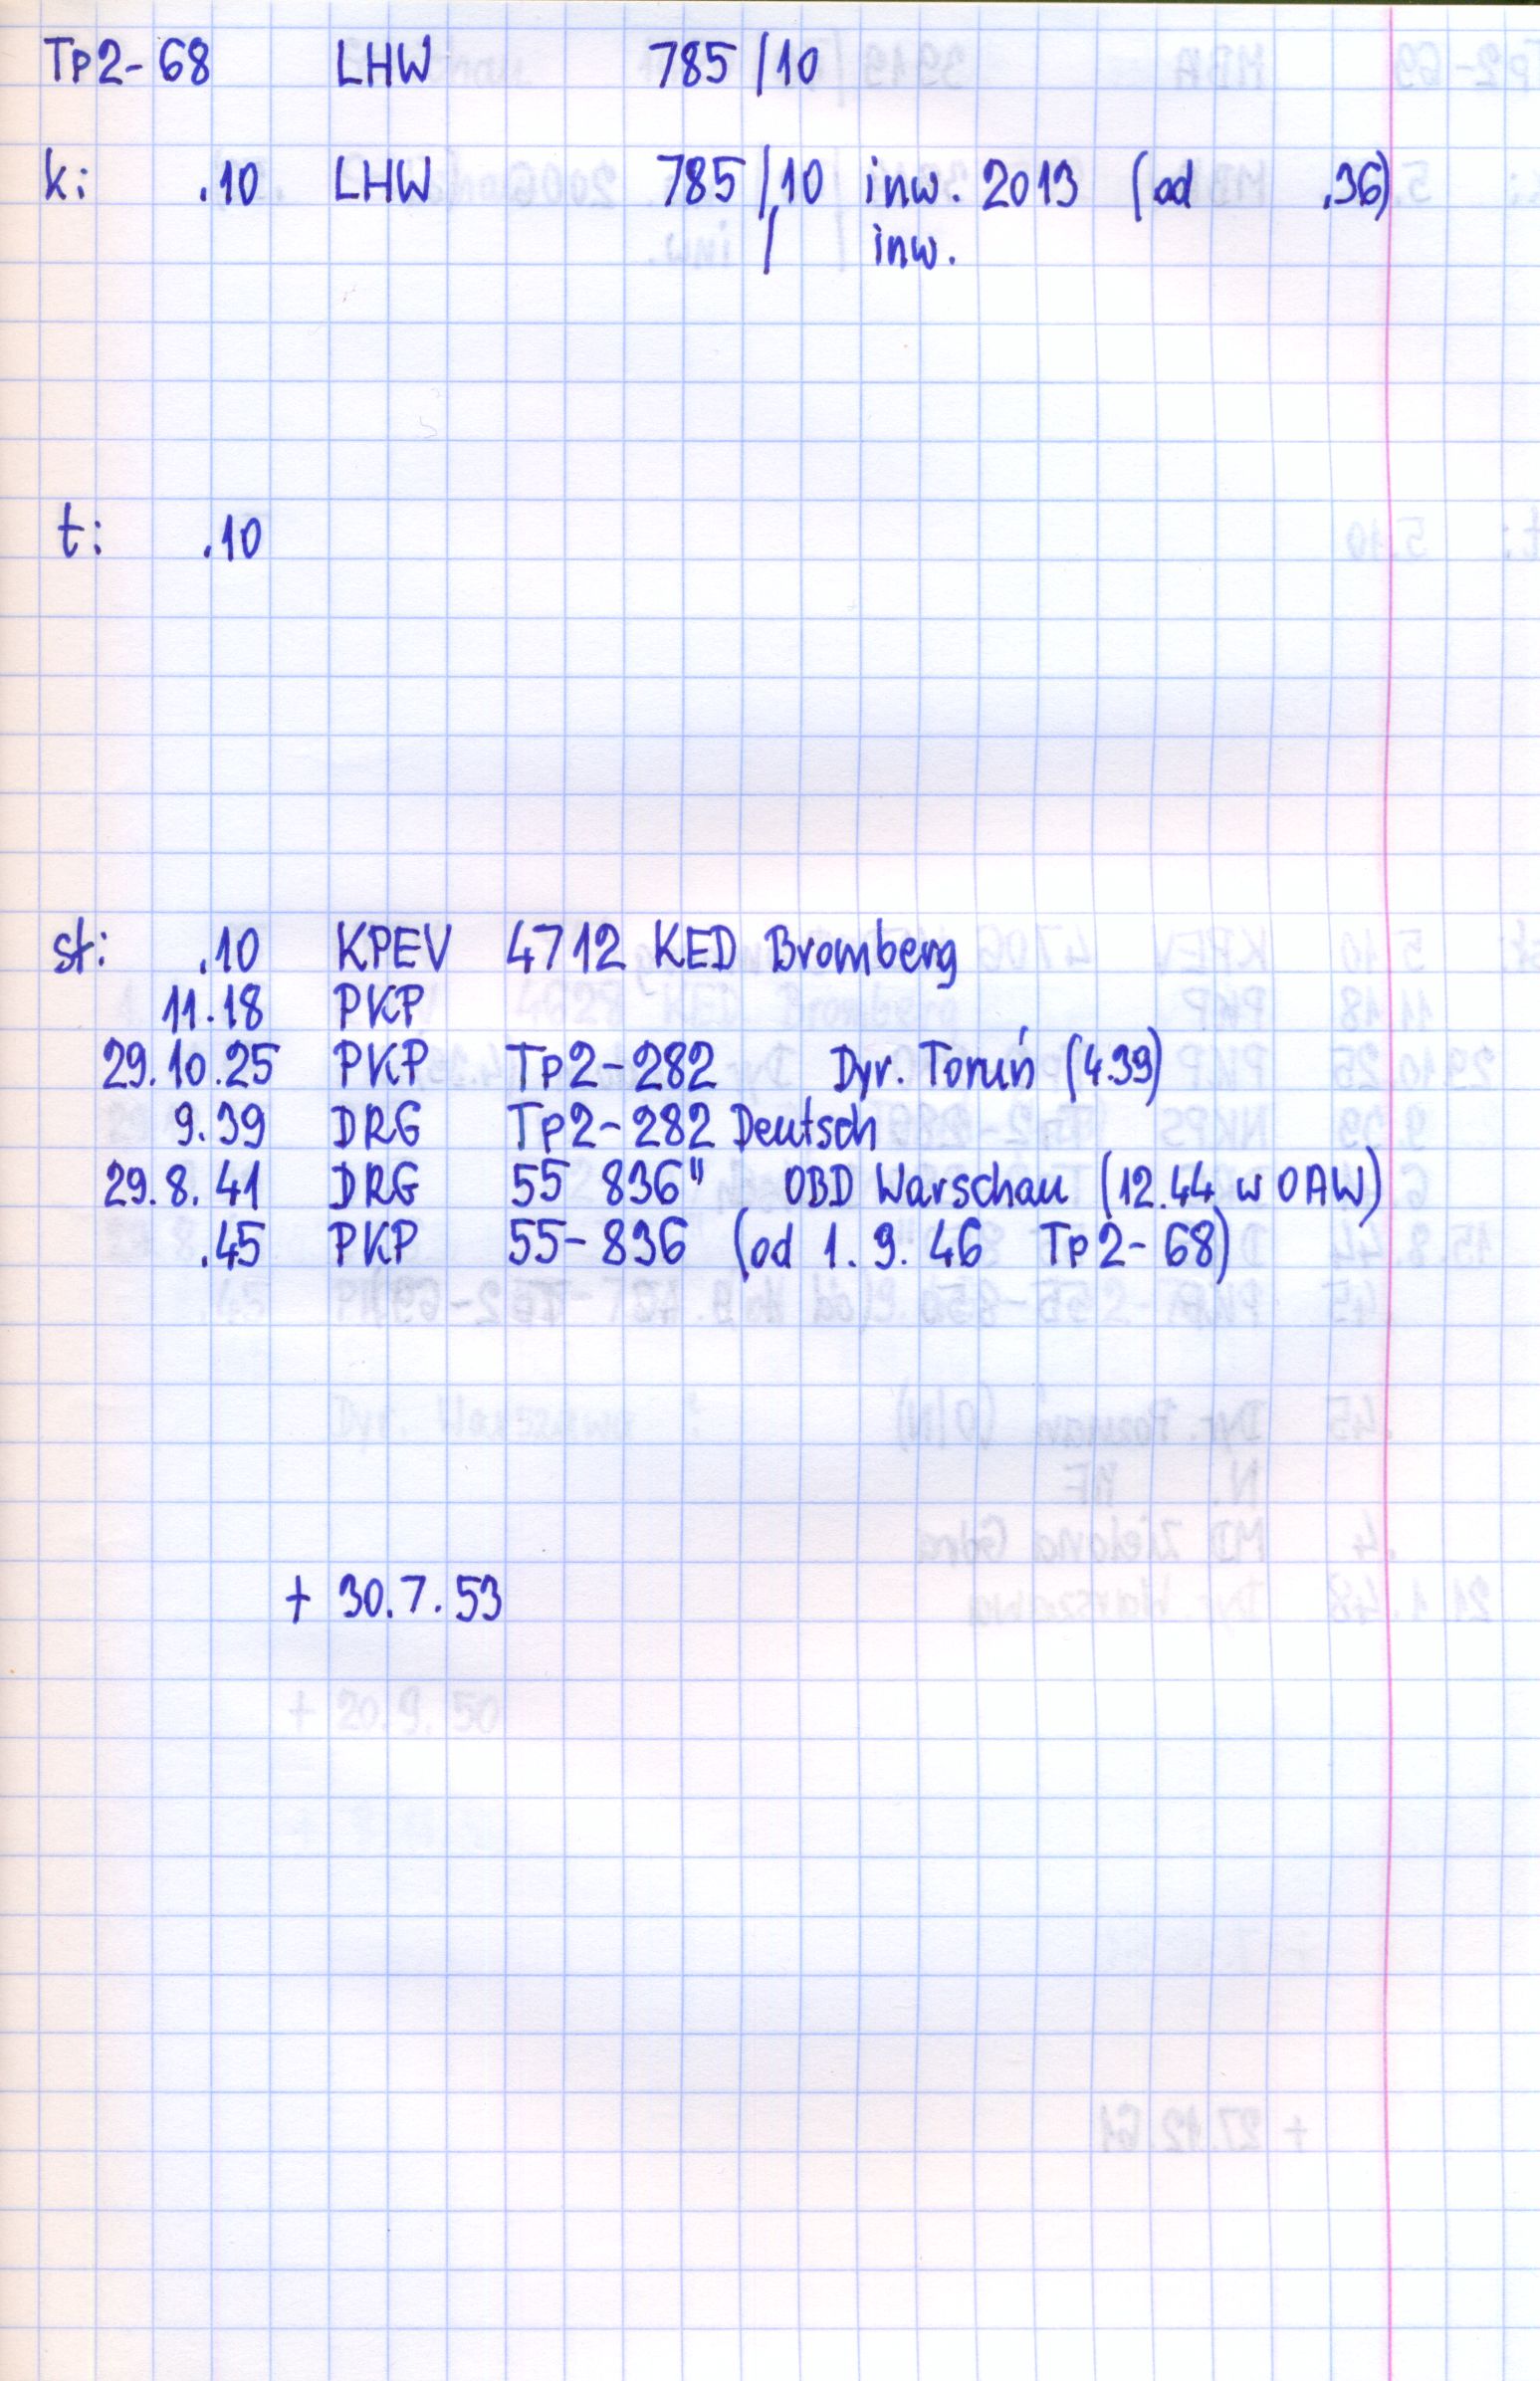 Tp2-68 LHW 785/10
k: .10 LHW 785/10 inw. 2013 (od .36)
/ inw.
t: .10
st: .10 KPEV 4712 KED Bromberg
11.18 PKP
29.10.25 PKP Tp2-282 Dyr. Toruń (4.39)
9.39 DRG Tp2-282 Deutsch
29.8.41 DRG 55 836" OBD Warschau (12.44 w OAW)
.45 PKP 55-836 (od 1.9.46 Tp2-68)
+ 30.7.53